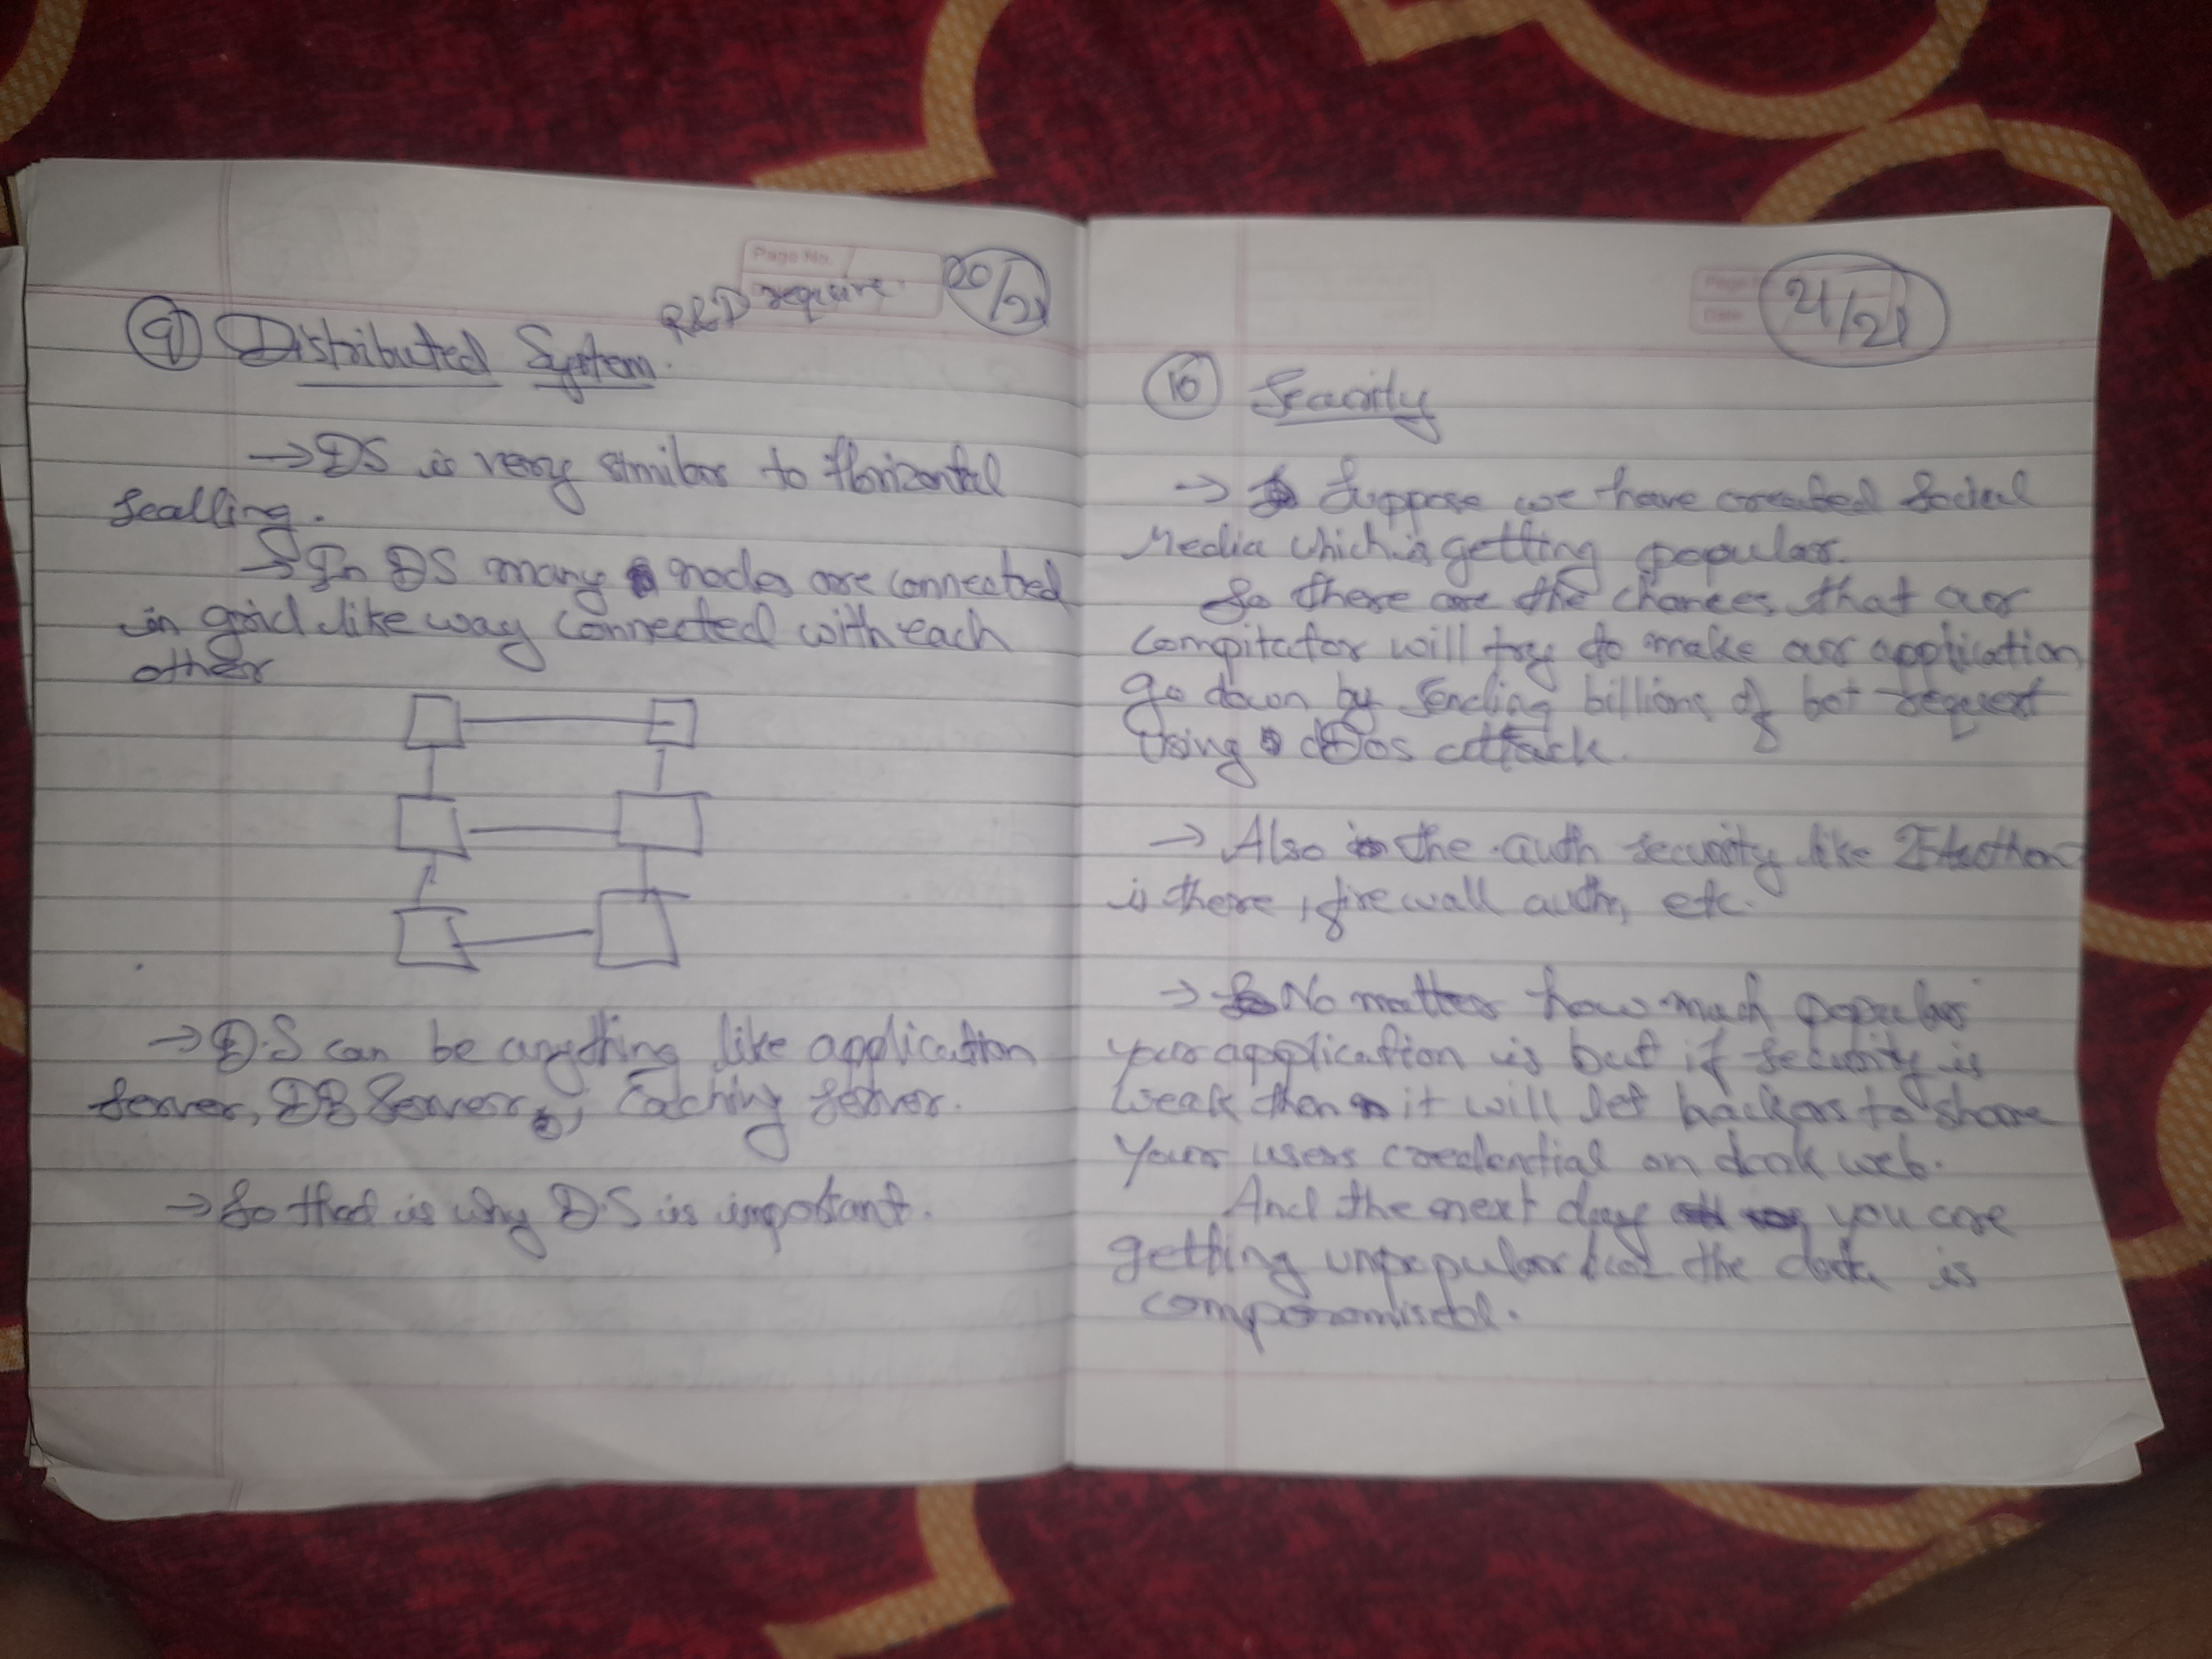 R&D require.
20/21
9 Distributed System.
→ DS is very similar to Horizontal
Scalling.
→ In DS many nodes are connected
in grid like way connected with each
other
→ D.S can be anything like application
Server, DB Server, Caching Server.
→ So that is why D.S is important.
Page No.
21/21
10 Security
→ Suppose we have created Social
Media which is getting popular.
So there are the chances that our
Compitator will try to make our application
go down by Sending billions of bot request
Using dDos attack.
→ Also the auth security like
is there, fire wall auth, etc.
→ No matter how much Popular
your application is but if Security is
weak than it will let hackers to share
Your users credential on dark web.
And the next day you are
getting unpopular and the data is
compromised.